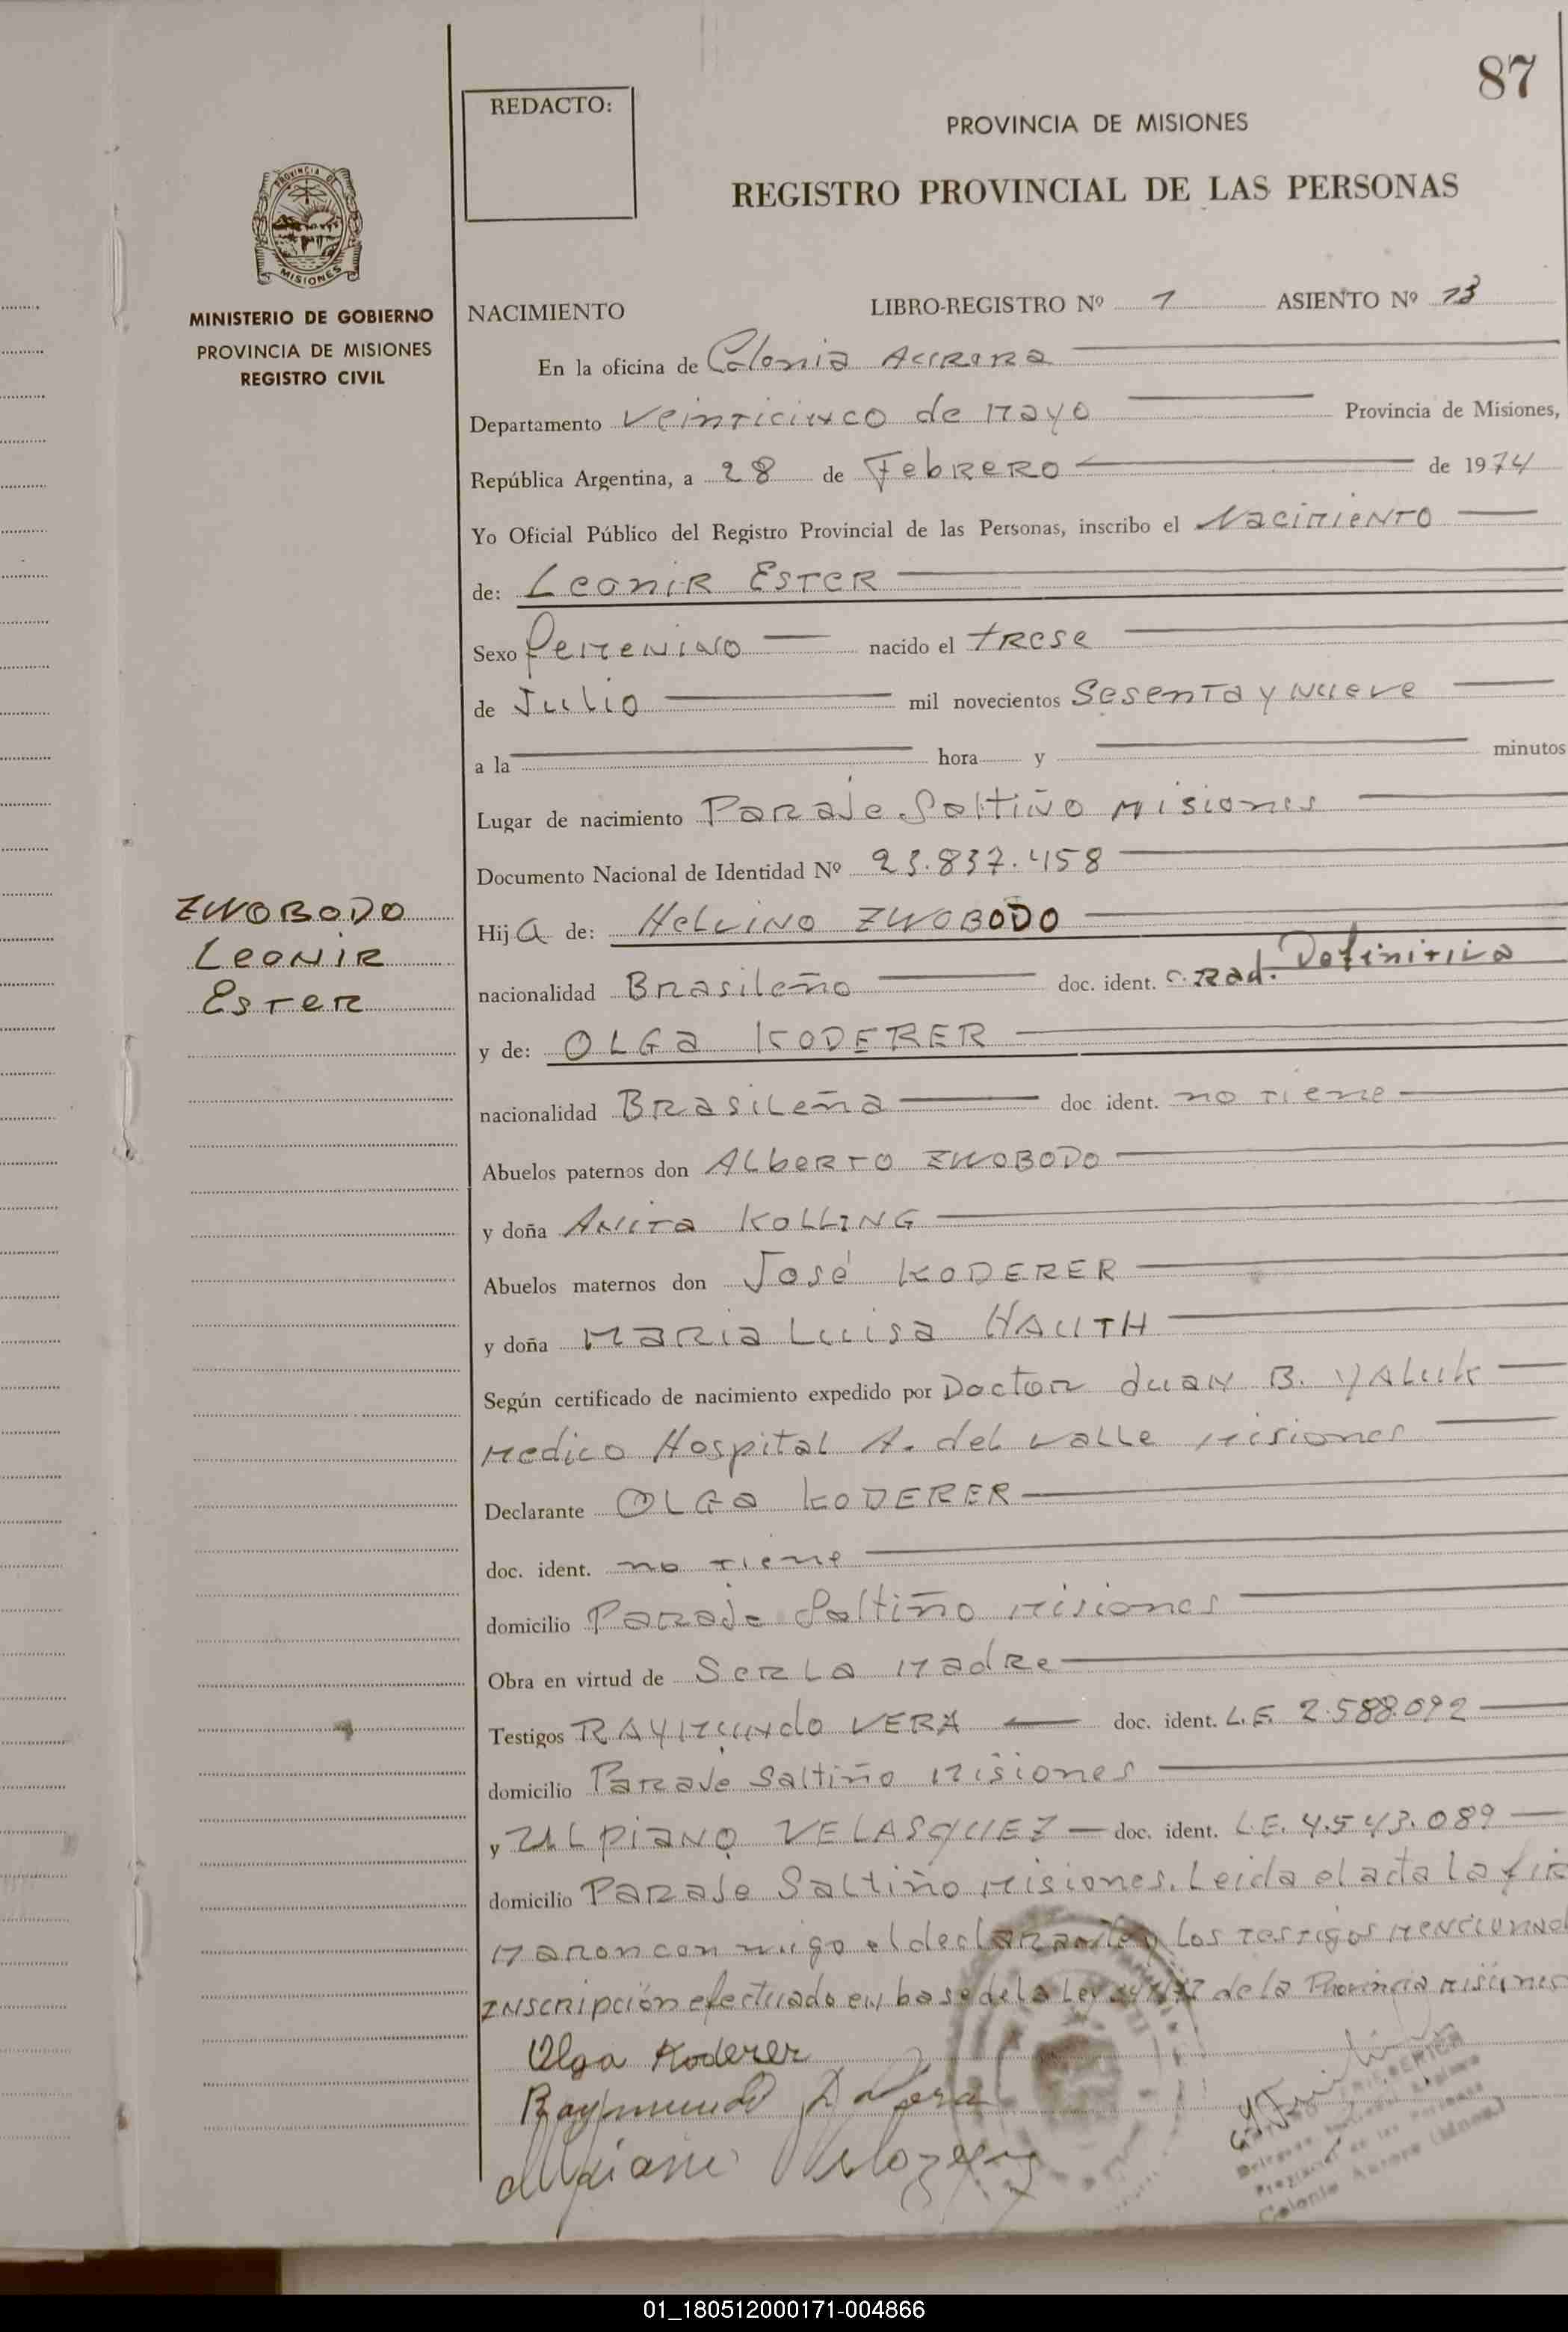 87
REDACTO:
PROVINCIA DE MISIONES
REGISTRO PROVINCIAL DE LAS PERSONAS
PROVINCIA DE
MISIONES
MINISTERIO DE GOBIERNO
PROVINCIA DE MISIONES
REGISTRO CIVIL
NACIMIENTO LIBRO-REGISTRO Nº 1 ASIENTO Nº 13
En la oficina de Colonia AURORA
Departamento Veinticinco de Mayo Provincia de Misiones,
República Argentina, a 28 de Febrero de 1974
Yo Oficial Público del Registro Provincial de las Personas, inscribo el Nacimiento
de: Leonir Ester
Sexo femenino nacido el trese
de Julio mil novecientos Sesenta y nueve
a la hora y minutos
Lugar de nacimiento Paraje Saltiño Misiones
Documento Nacional de Identidad Nº 23.837.458
ZWOBODO
Leonir
Ester
Hija de: Helvino ZWOBODO
nacionalidad Brasileño doc. ident. C. Rad. Definitiva
y de: OLGa KODERER
nacionalidad Brasileña doc ident. no tiene
Abuelos paternos don Alberto ZWOBODO
y doña Anita KOLLING
Abuelos maternos don José KODERER
y doña Maria Luisa HAUTH
Según certificado de nacimiento expedido por Doctor Juan B. YALUK
Medico Hospital A. del Valle Misiones
Declarante OLGa KODERER
doc. ident. no tiene
domicilio Paraje Saltiño Misiones
Obra en virtud de Ser La Madre
Testigos RAYMundo VERA doc. ident. L.E. 2.588.092
domicilio Paraje Saltiño Misiones
y ULPiano VELASQUEZ doc. ident. L.E. 4.543.089
domicilio Paraje Saltiño Misiones. Leida el acta la fir
maron con migo el declarante y los testigos menciunad
Inscripción efectuado en base de la Ley de la Provincia Misiones
Olga Koderer
Raymundo Vera
Colonia Aurora (Mnes.)
01_180512000171-004866